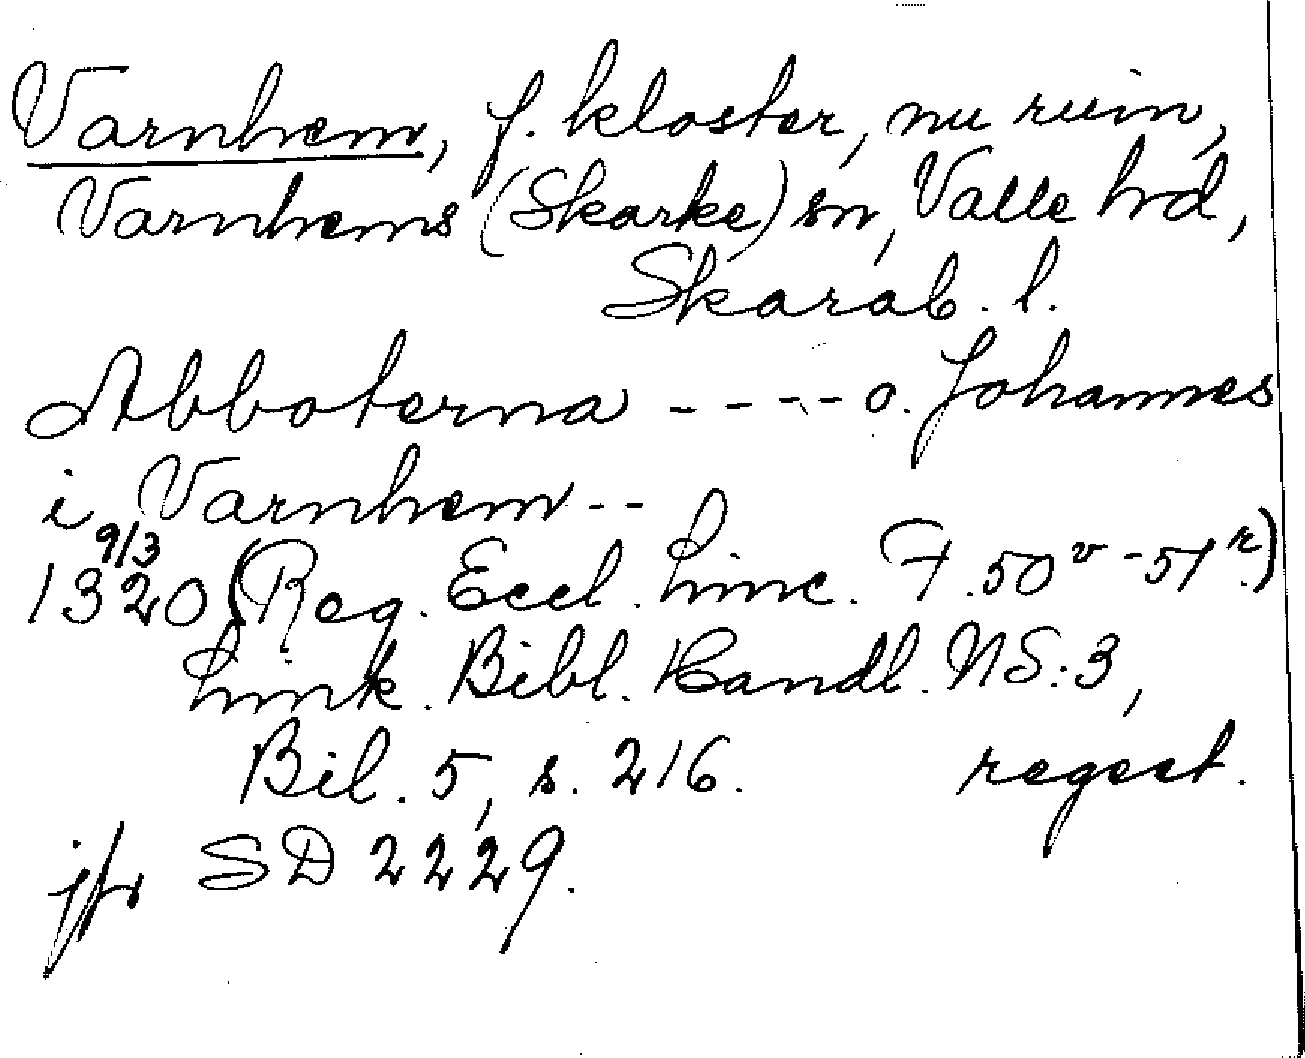 Varnhem, f. kloster, nu ruin,
Varnhems (Skarke) sn, Valle hd,
Skarab. l.
Abboterna - - - - o. Johannes
i Varnhem - -
9/3
1320 (Reg. Eccl. Linc. F. 50v - 51r.)
Link. Bibl. Handl. NS: 3,
Bil. 5, s. 216. regest.
jfr SD 2229.